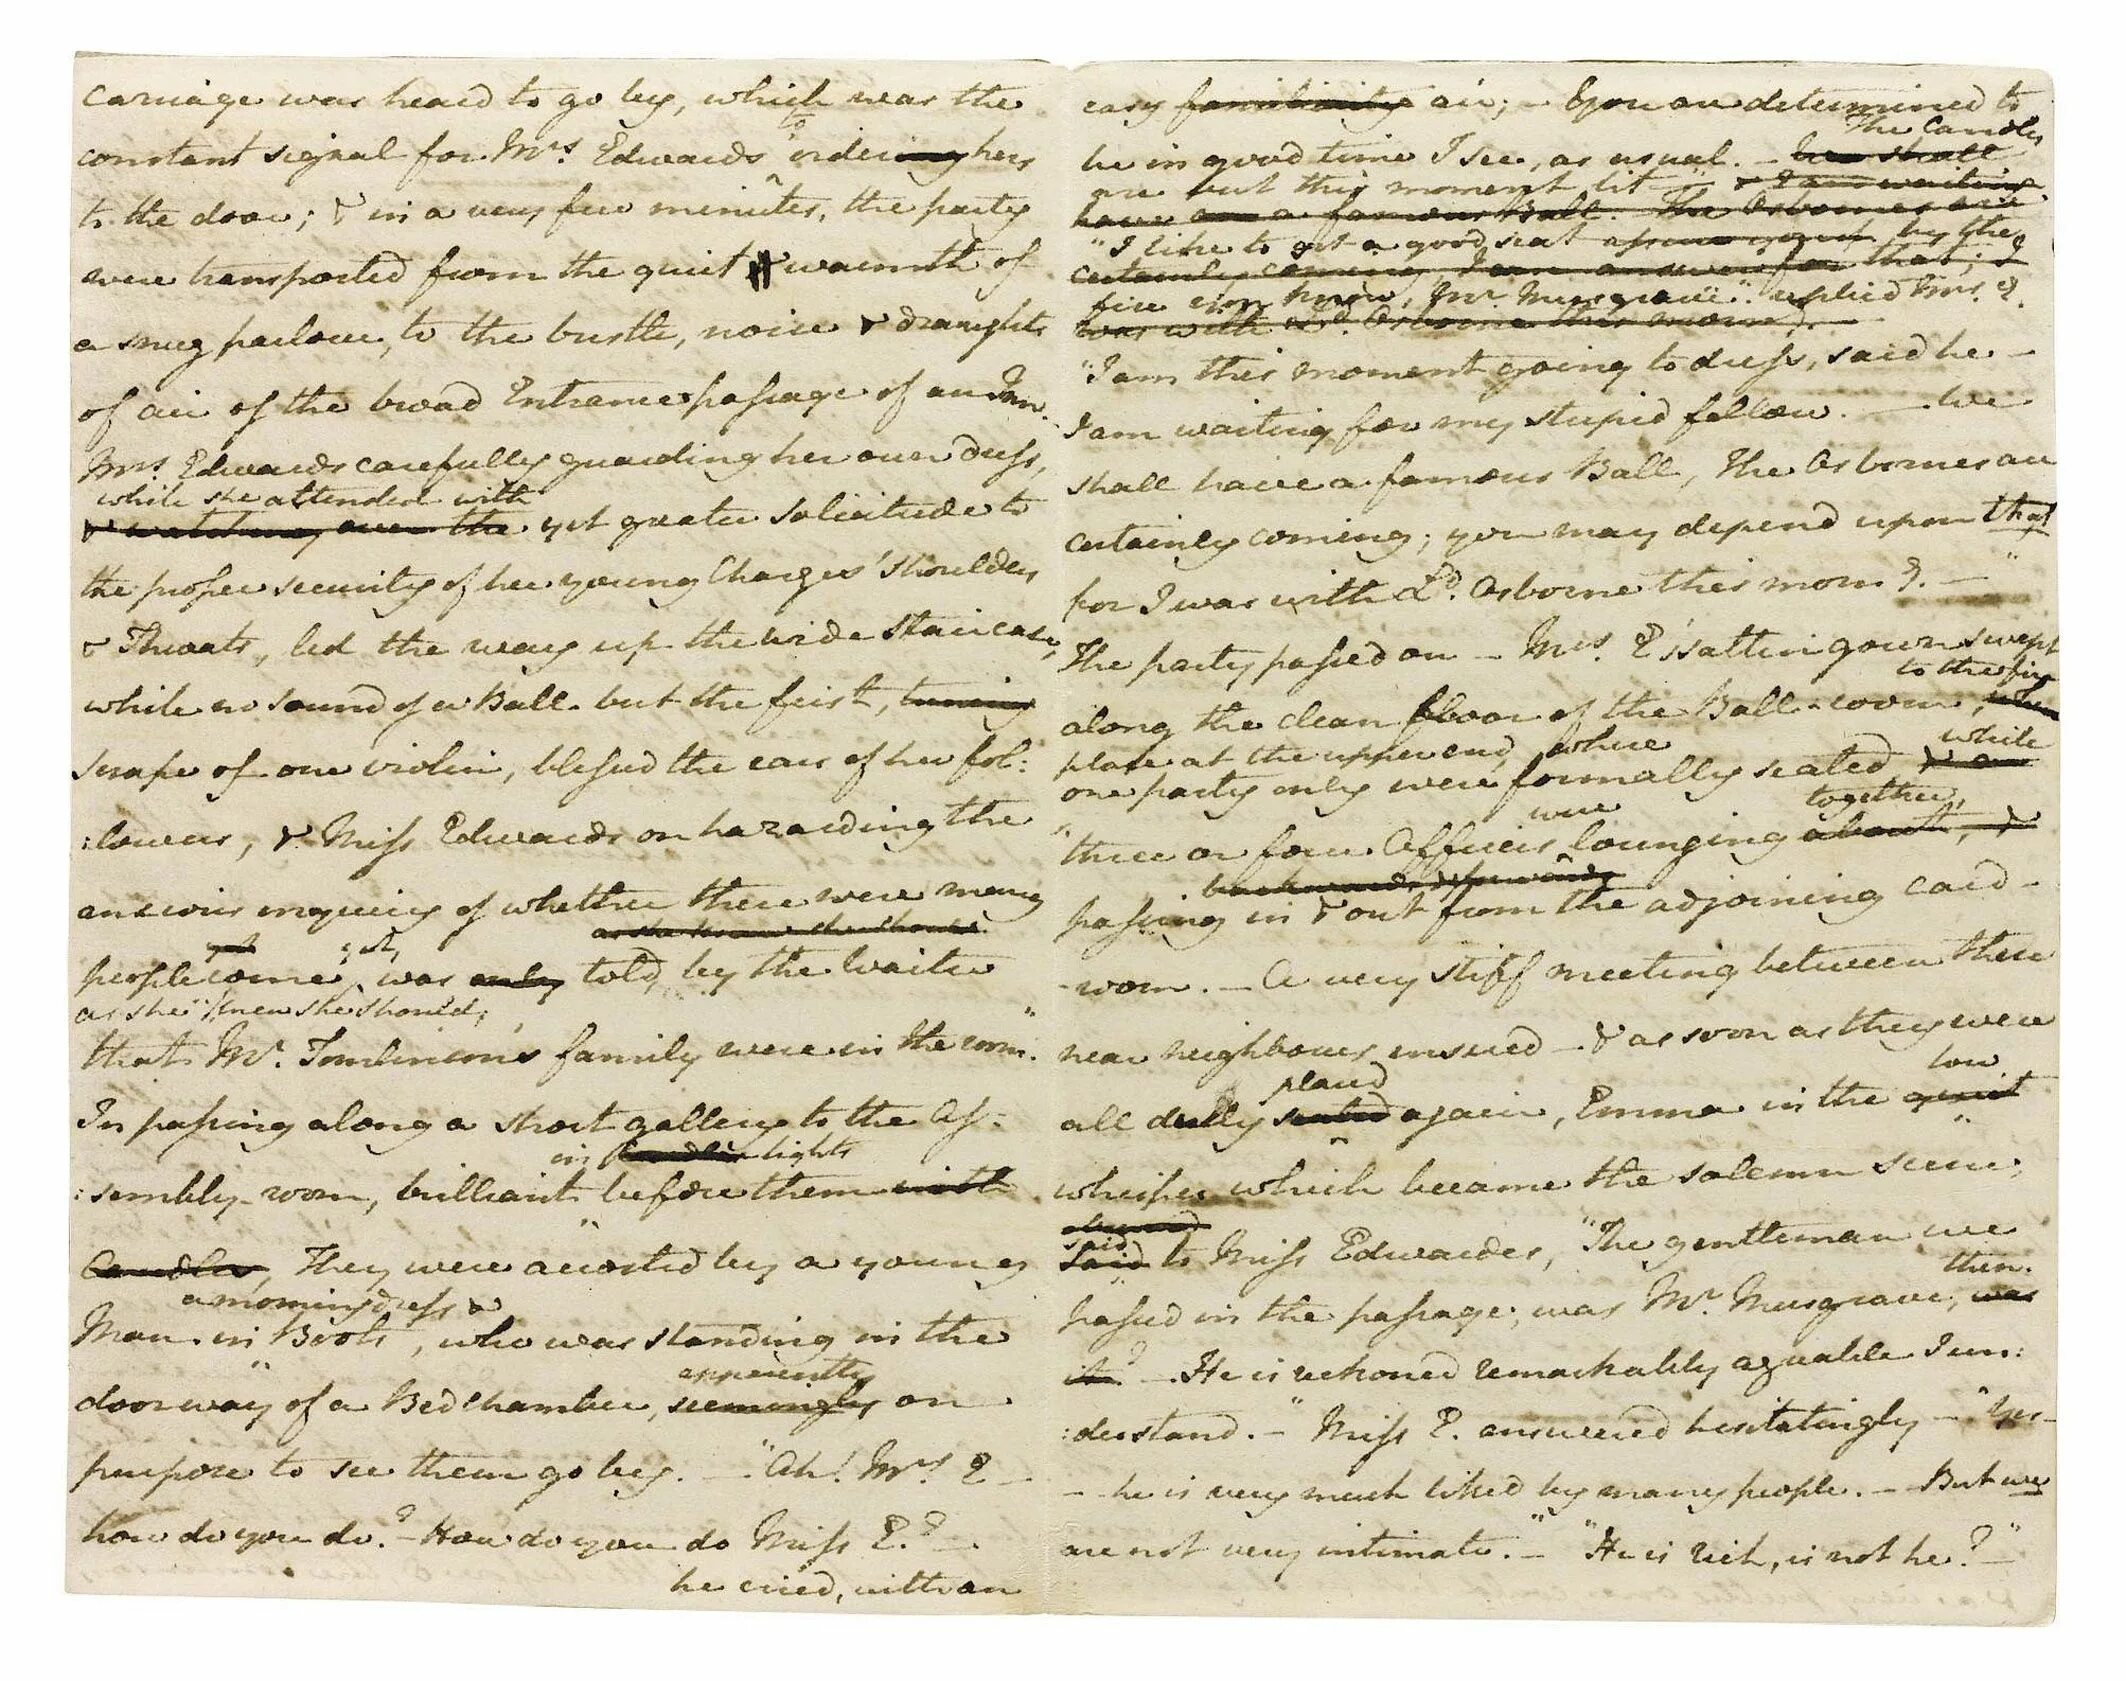 carriage was heard to go by, which was the
to
constant signal for Mrs. Edwards ordering hers
to the door; & in a very few minutes, the party
were transported from the quiet & warmth of
a snug parlour, to the bustle, noise & draughts
of air of the broad Entrance-passage of an Inn.
Mrs. Edwards carefully guarding her own dress,
while she attended with
& watching over the yet greater solicitude to
the proper security of her young Charges' shoulders
& Throats, led the way up the wide staircase,
while no sound of a Ball but the first, tuning
scrape of one violin, blessed the ears of her fol:
:lowers, & Miss Edwards on hazarding the
anxious enquiry of whether there were many
as she knew she should
yet yet,
people come, was only told, by the Waiter
as she knew she should,
that Mr. Tomlinson's family were in the room."
In passing along a short gallery to the As:
in lights
:sembly-room, brilliant before them with
Candles, They were accosted by a young
a morning dress &
Man in Boots, who was standing in the
apparently
doorway of a Bedchamber, seemingly on
purpose to see them go by. — "Ah! Mrs. E —
how do you do? — How do you do Miss E.? —
he cried, with an
easy familiarity air; — You are determined to
The Candles
be in good time I see, as usual. — We shall
are but this moment lit — & I am waiting
have a famous Ball. The Osbornes are
"I like to get a good seat by the
certainly coming I can answer for that; I
fire you know, Mr. Musgrave." replied Mrs. E.
was with Ld. Osborne this morng. —
"I am this moment going to dress, said he —
I am waiting for my stupid fellow. — We
shall have a famous Ball, The Osbornes are
certainly coming; you may depend upon that
for I was with Ld. Osborne this morng. —"
The party passed on — Mrs. E's sattin gown swept
to the fire
along the clean floor of the Ball-room, when
place at the upper end, where
while
one party only were formally seated, & a
were together,
three or four Officers lounging about, &
backwards & forwards
passing in & out from the adjoining card-
-room. — A very stiff meeting between these
near neighbours ensued — & as soon as they were
placed low
all duely seated again, Emma in the quiet
whisper which became the solemn scene,
observed
said
said to Miss Edwardes, "The gentleman we
then.
passed in the passage, was Mr. Musgrave, was
it? — He is reckoned remarkably agreable I un:
:derstand. —" Miss E. answered hesitatingly — "Yes —
— he is very much liked by many people. — But we
are not very intimate." — "He is rich, is not he?" —